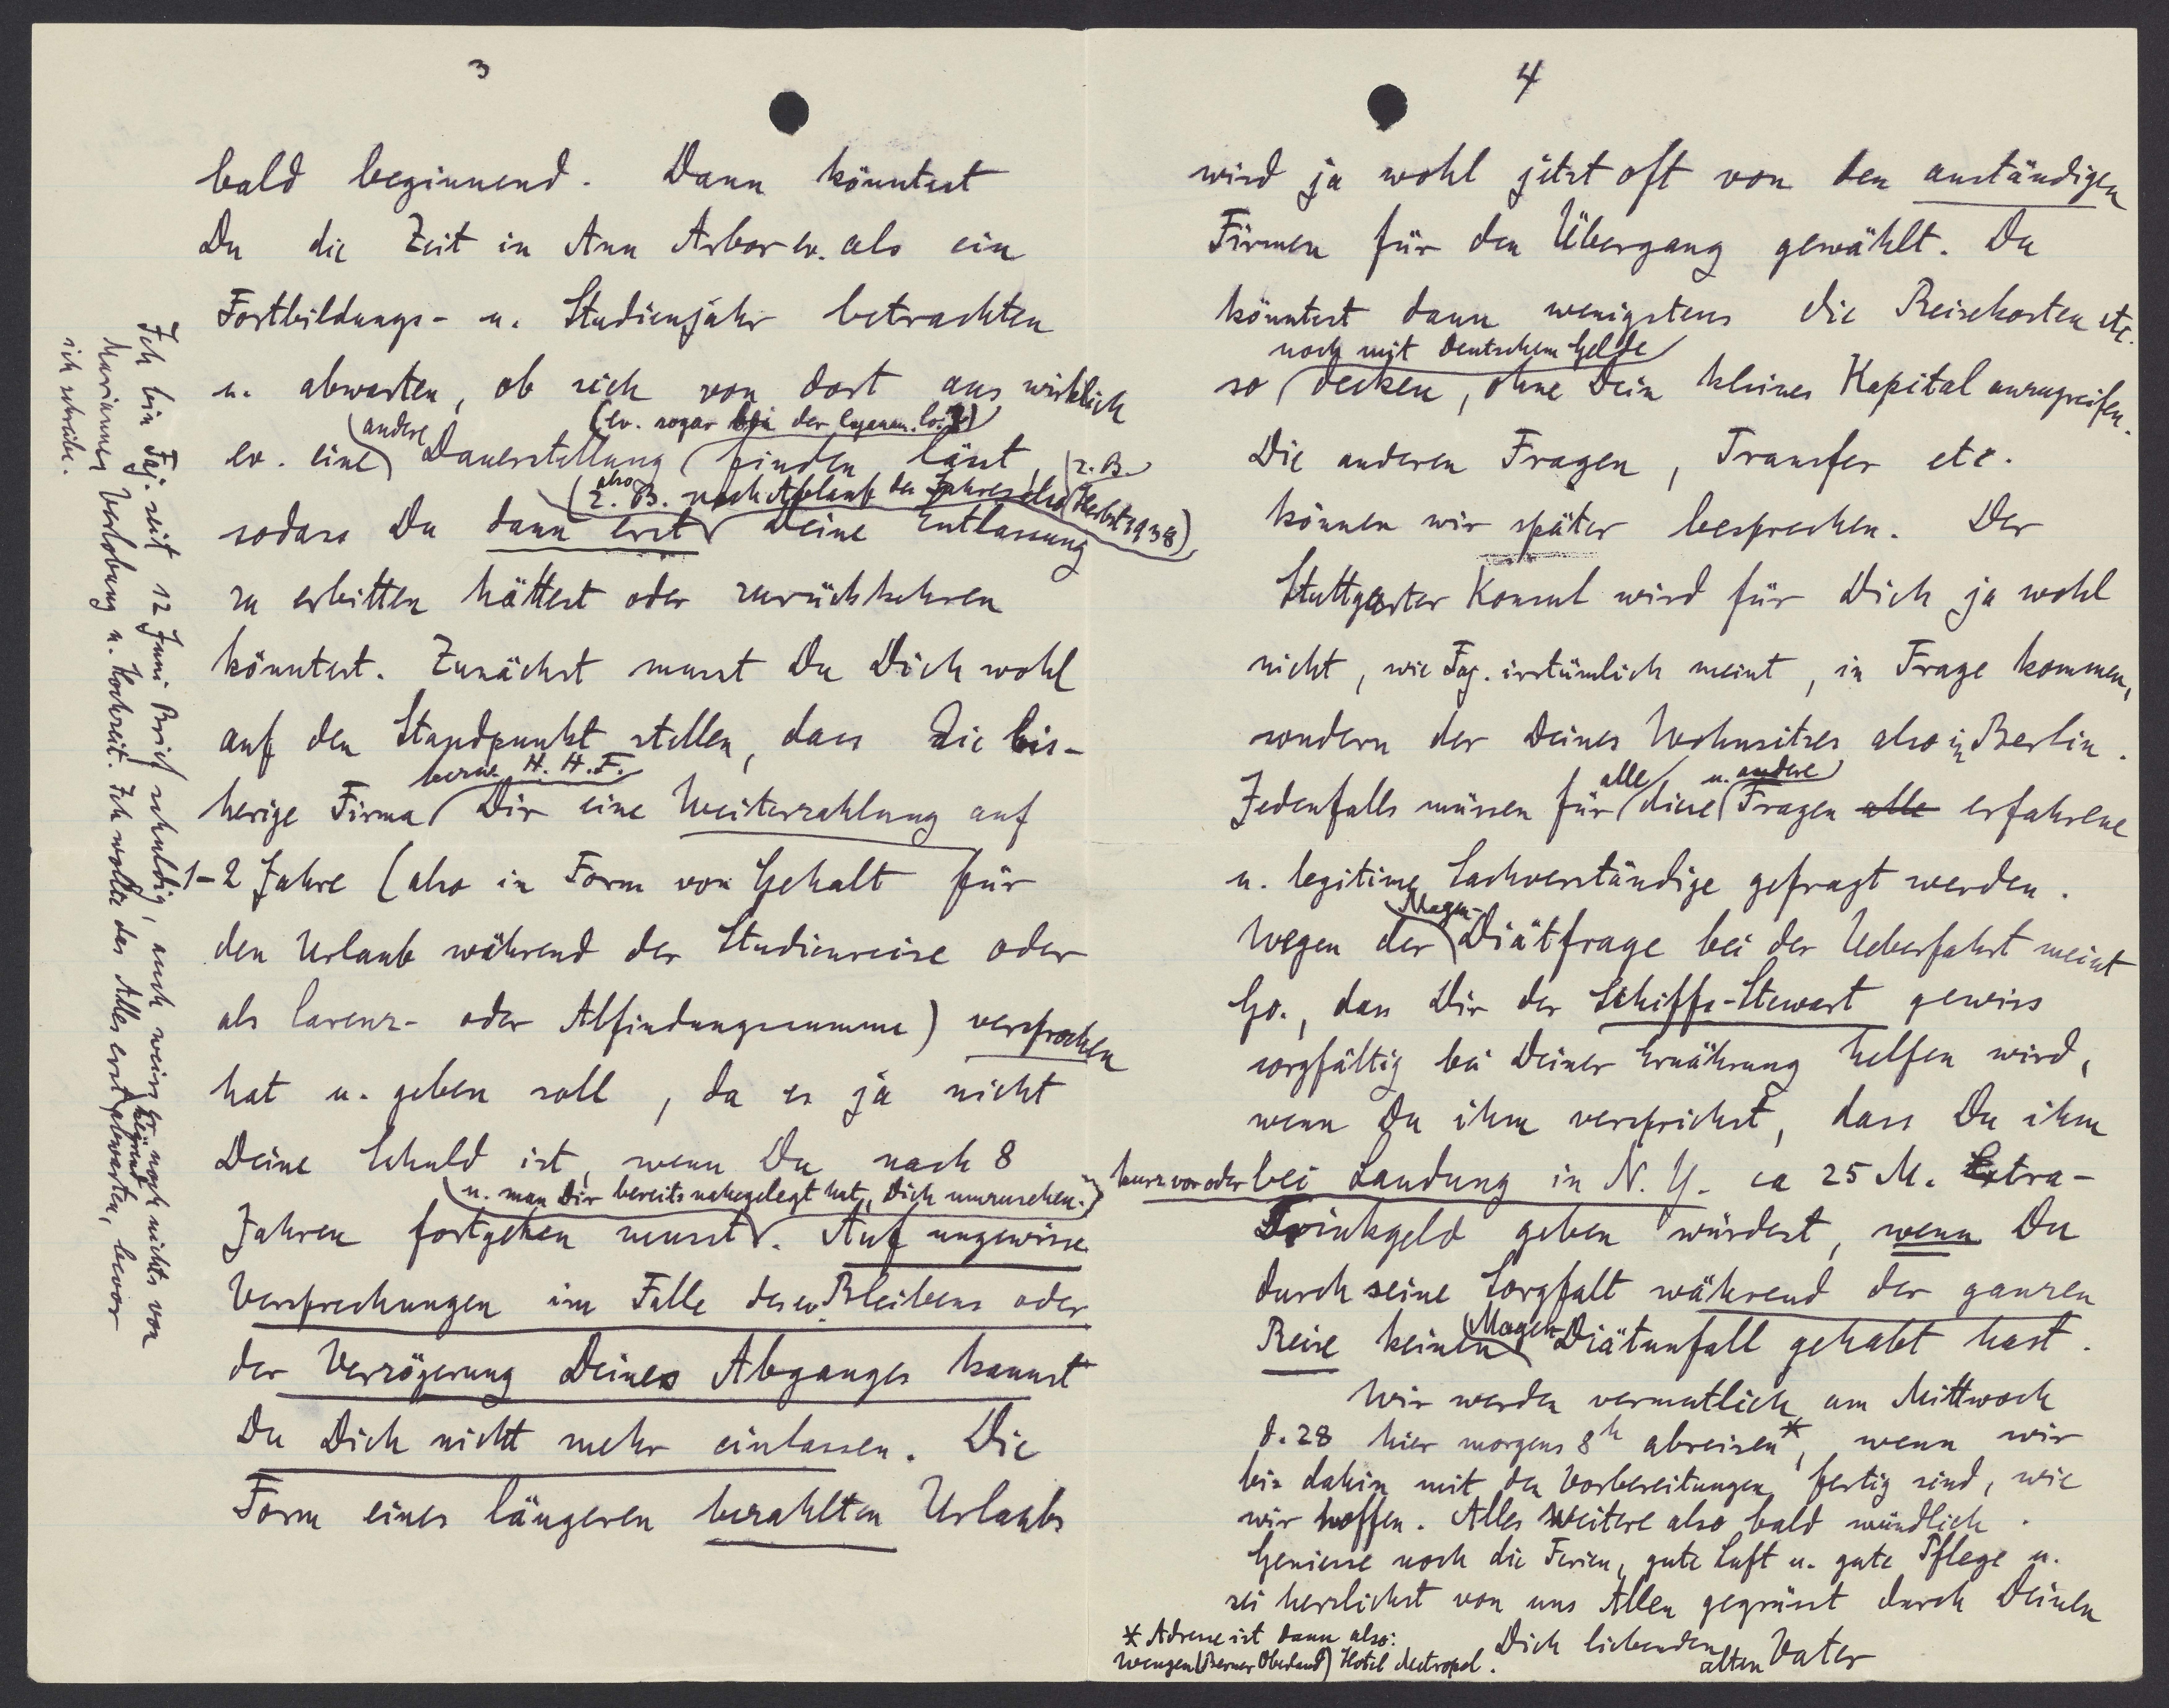 3
bald beginnend. Dann könntest
Du die Zeit in Ann Arbor ev. als ein
Fortbildungs- u. Studienjahr betrachten
u. abwarten, ob sich von dort aus wirklich
(ev. sogar bei der
ev. eine andere Dauerstellung finden lässt, z. B.
(also z. B. nach Ablauf des Jahres also Herbst 1938)
sodass Du dann erst Deine Entlassung
zu erbitten hättest oder zurückkehren
könntest. Zunächst musst Du Dich wohl
auf den Standpunkt stellen, dass die bis-
herige Firma bezw. H. H. F. Dir eine Weiterzahlung auf
1-2 Jahre (also in Form von Gehalt für
den Urlaub während der Studienreise oder
als Carenz- oder Abfindungssumme) versprochen
hat u. geben soll, da es ja nicht
Deine Schuld ist, wenn Du nach 8
u. man Dir bereits nahegelegt hat, Dich umzusehen.
Jahren fortgehen musst. Auf ungewisse
Versprechungen im Falle des ev. Bleibens oder
der Verzögerung Deines Abganges kannst
Du Dich nicht mehr einlassen. Die
Form eines längeren bezahlten Urlaubs
Ich bin Faj. seit 12 Juni Brief schuldig, auch weiss er noch nichts von
Mariannes Verlobung u. Hochzeit. Ich wollte das Alles erst abwarten, bevor
ich schreibe.
4
wird ja wohl jetzt oft von den anständigen
Firmen für den Übergang gewählt. Du
könntest dann wenigstens die Reisekosten etc.
noch mit Deutschem Gelde
so decken, ohne Dein kleines Kapital anzugreifen.
Die anderen Fragen, Transfer etc.
können wir später besprechen. Der
Stuttgarter Konsul wird für Dich ja wohl
nicht, wie Faj. irrtümlich meint, in Frage kommen,
sondern der Deines Wohnsitzes also in Berlin.
Jedenfalls müssen für alle diese u. andere Fragen alle erfahrene
u. legitime Sachverständige gefragt werden.
Wegen der Magen-Diätfrage bei der Ueberfahrt meint
Go., dass Dir der Schiffs-Stewart gewiss
sorgfältig bei Deiner Ernährung helfen wird,
wenn Du ihm versprichst, dass Du ihm
kurz vor oder bei Landung in N. Y. ca 25 M. Extra-
Trinkgeld geben würdest, wenn Du
durch seine Sorgfalt während der ganzen
Reise keinen Magen-Diätunfall gehabt hast.
Wir werden vermutlich am Mittwoch
d. 28 hier morgens 8h abreisen*, wenn wir
bis dahin mit den Vorbereitungen fertig sind, wie
wir hoffen. Alles Weitere also bald mündlich.
Geniesse noch die Ferien, gute Luft u. gute Pflege u.
sei herzlichst von uns Allen gegrüsst durch Deinen
Dich liebenden alten Vater
* Adresse ist dann also:
Wengen (Berner Oberland) Hotel Metropol.